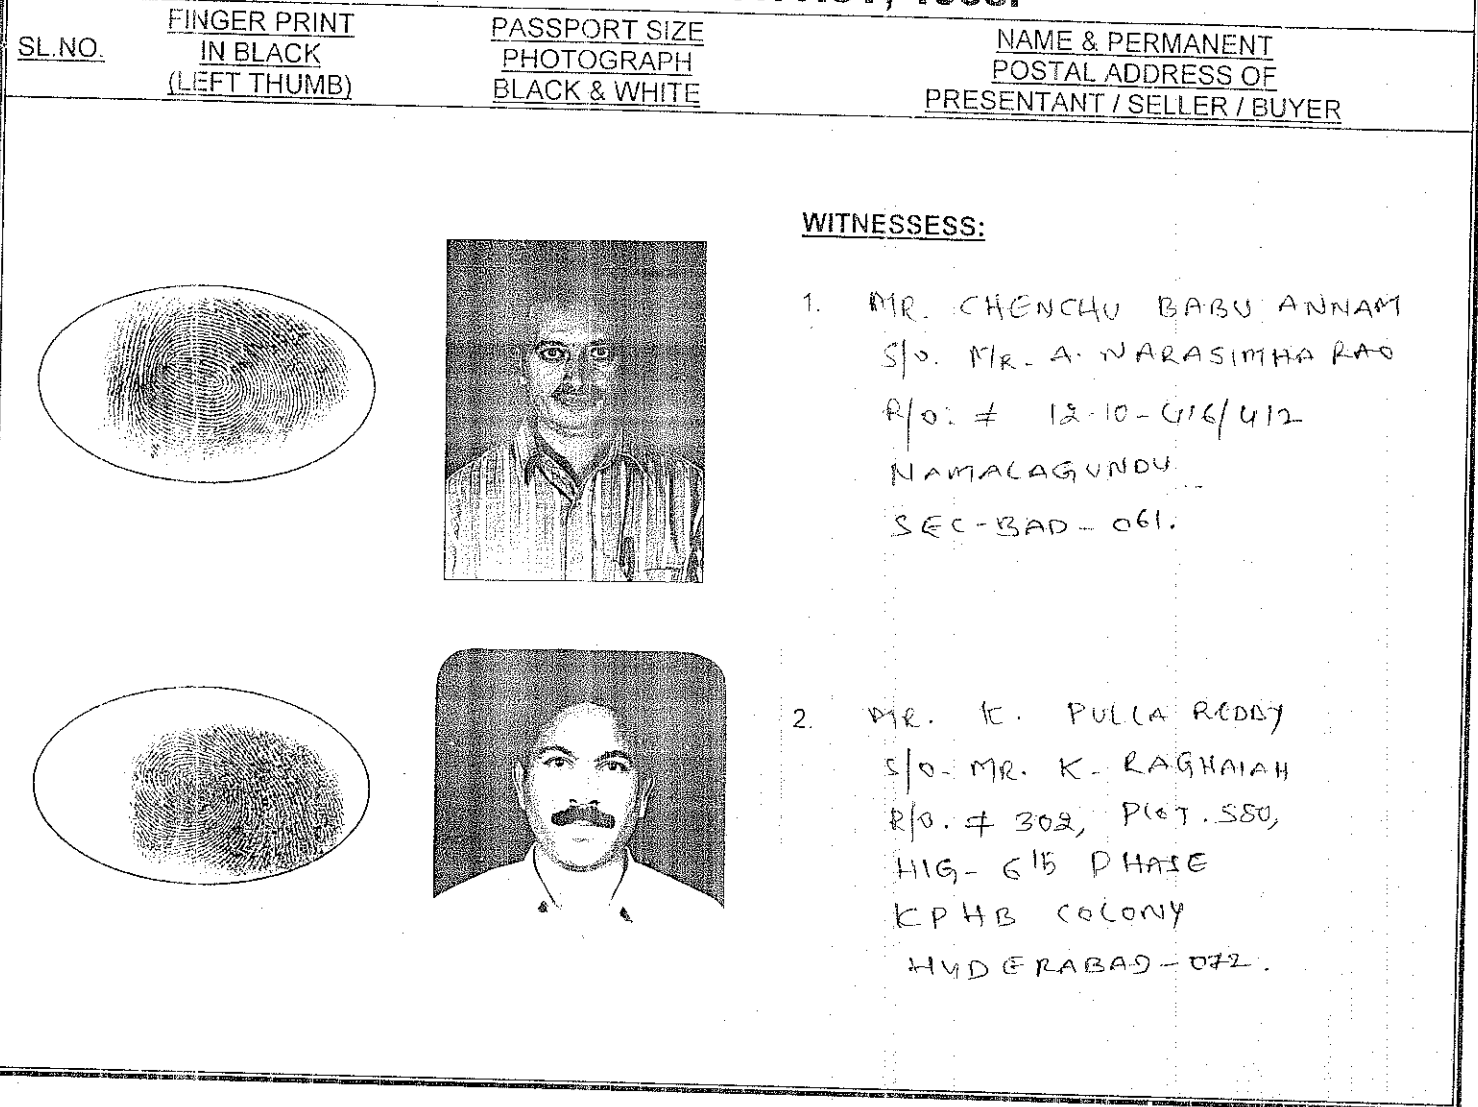 SL.NO.
FINGER PRINT
IN BLACK
(LEFT THUMB)
PASSPORT SIZE
PHOTOGRAPH
BLACK & WHITE
NAME & PERMANENT
POSTAL ADDRESS OF
PRESENTANT / SELLER / BUYER
WITNESSESS:
1. MR. CHENCHU BABU ANNAM
S/O. MR. A. NARASIMHA RAO
R/O. # 12-10-416/412
NAMALAGUNDU
SEC-BAD-061.
2. MR. K. PULLA REDDY
S/O. MR. K. RAGHAIAH
R/O. # 302, PLOT. 580,
HIG- 6th PHASE
KPHB COLONY
HYDERABAD-072.